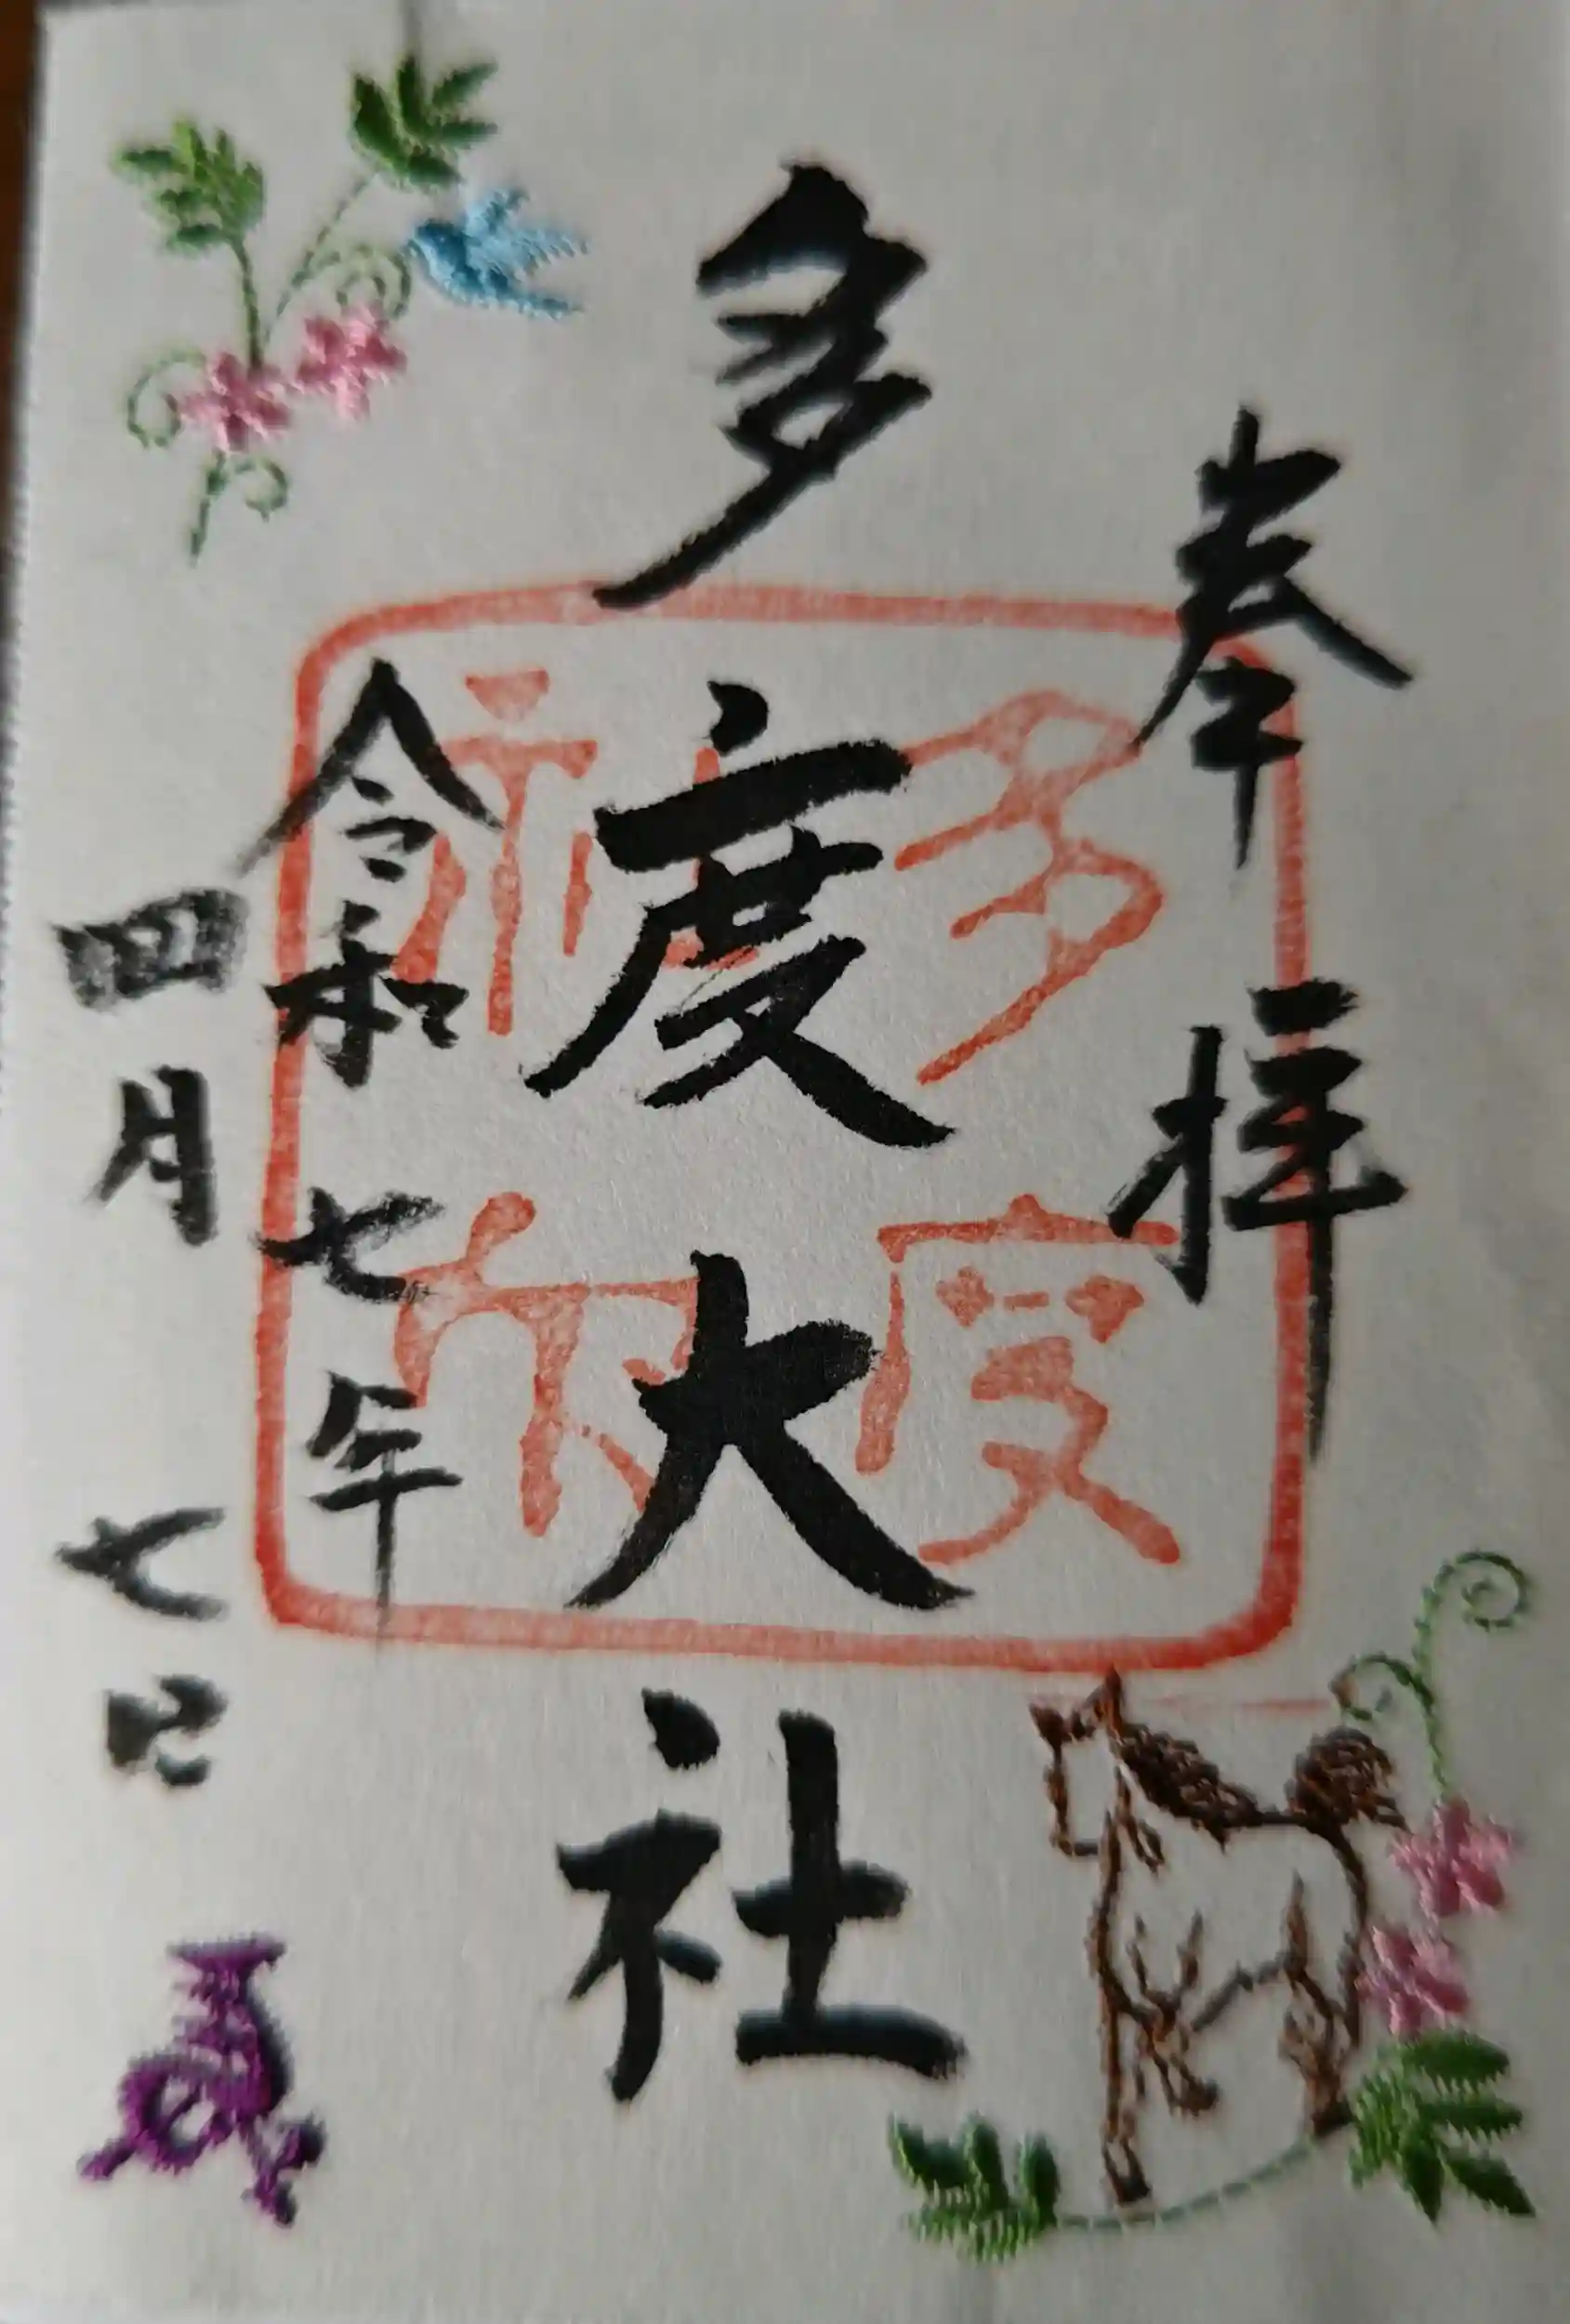 奉拝
多度大社
多度神社
令和七年
四月七日